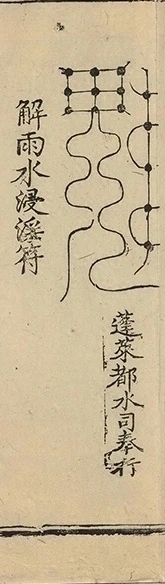 蓬萊都水司奉行
解雨水浸淫符